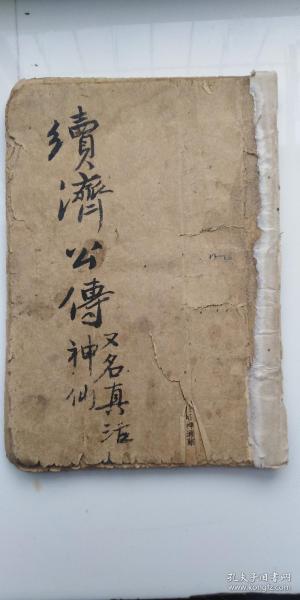 續濟公傳
又名真活
神仙
孔夫子旧书网